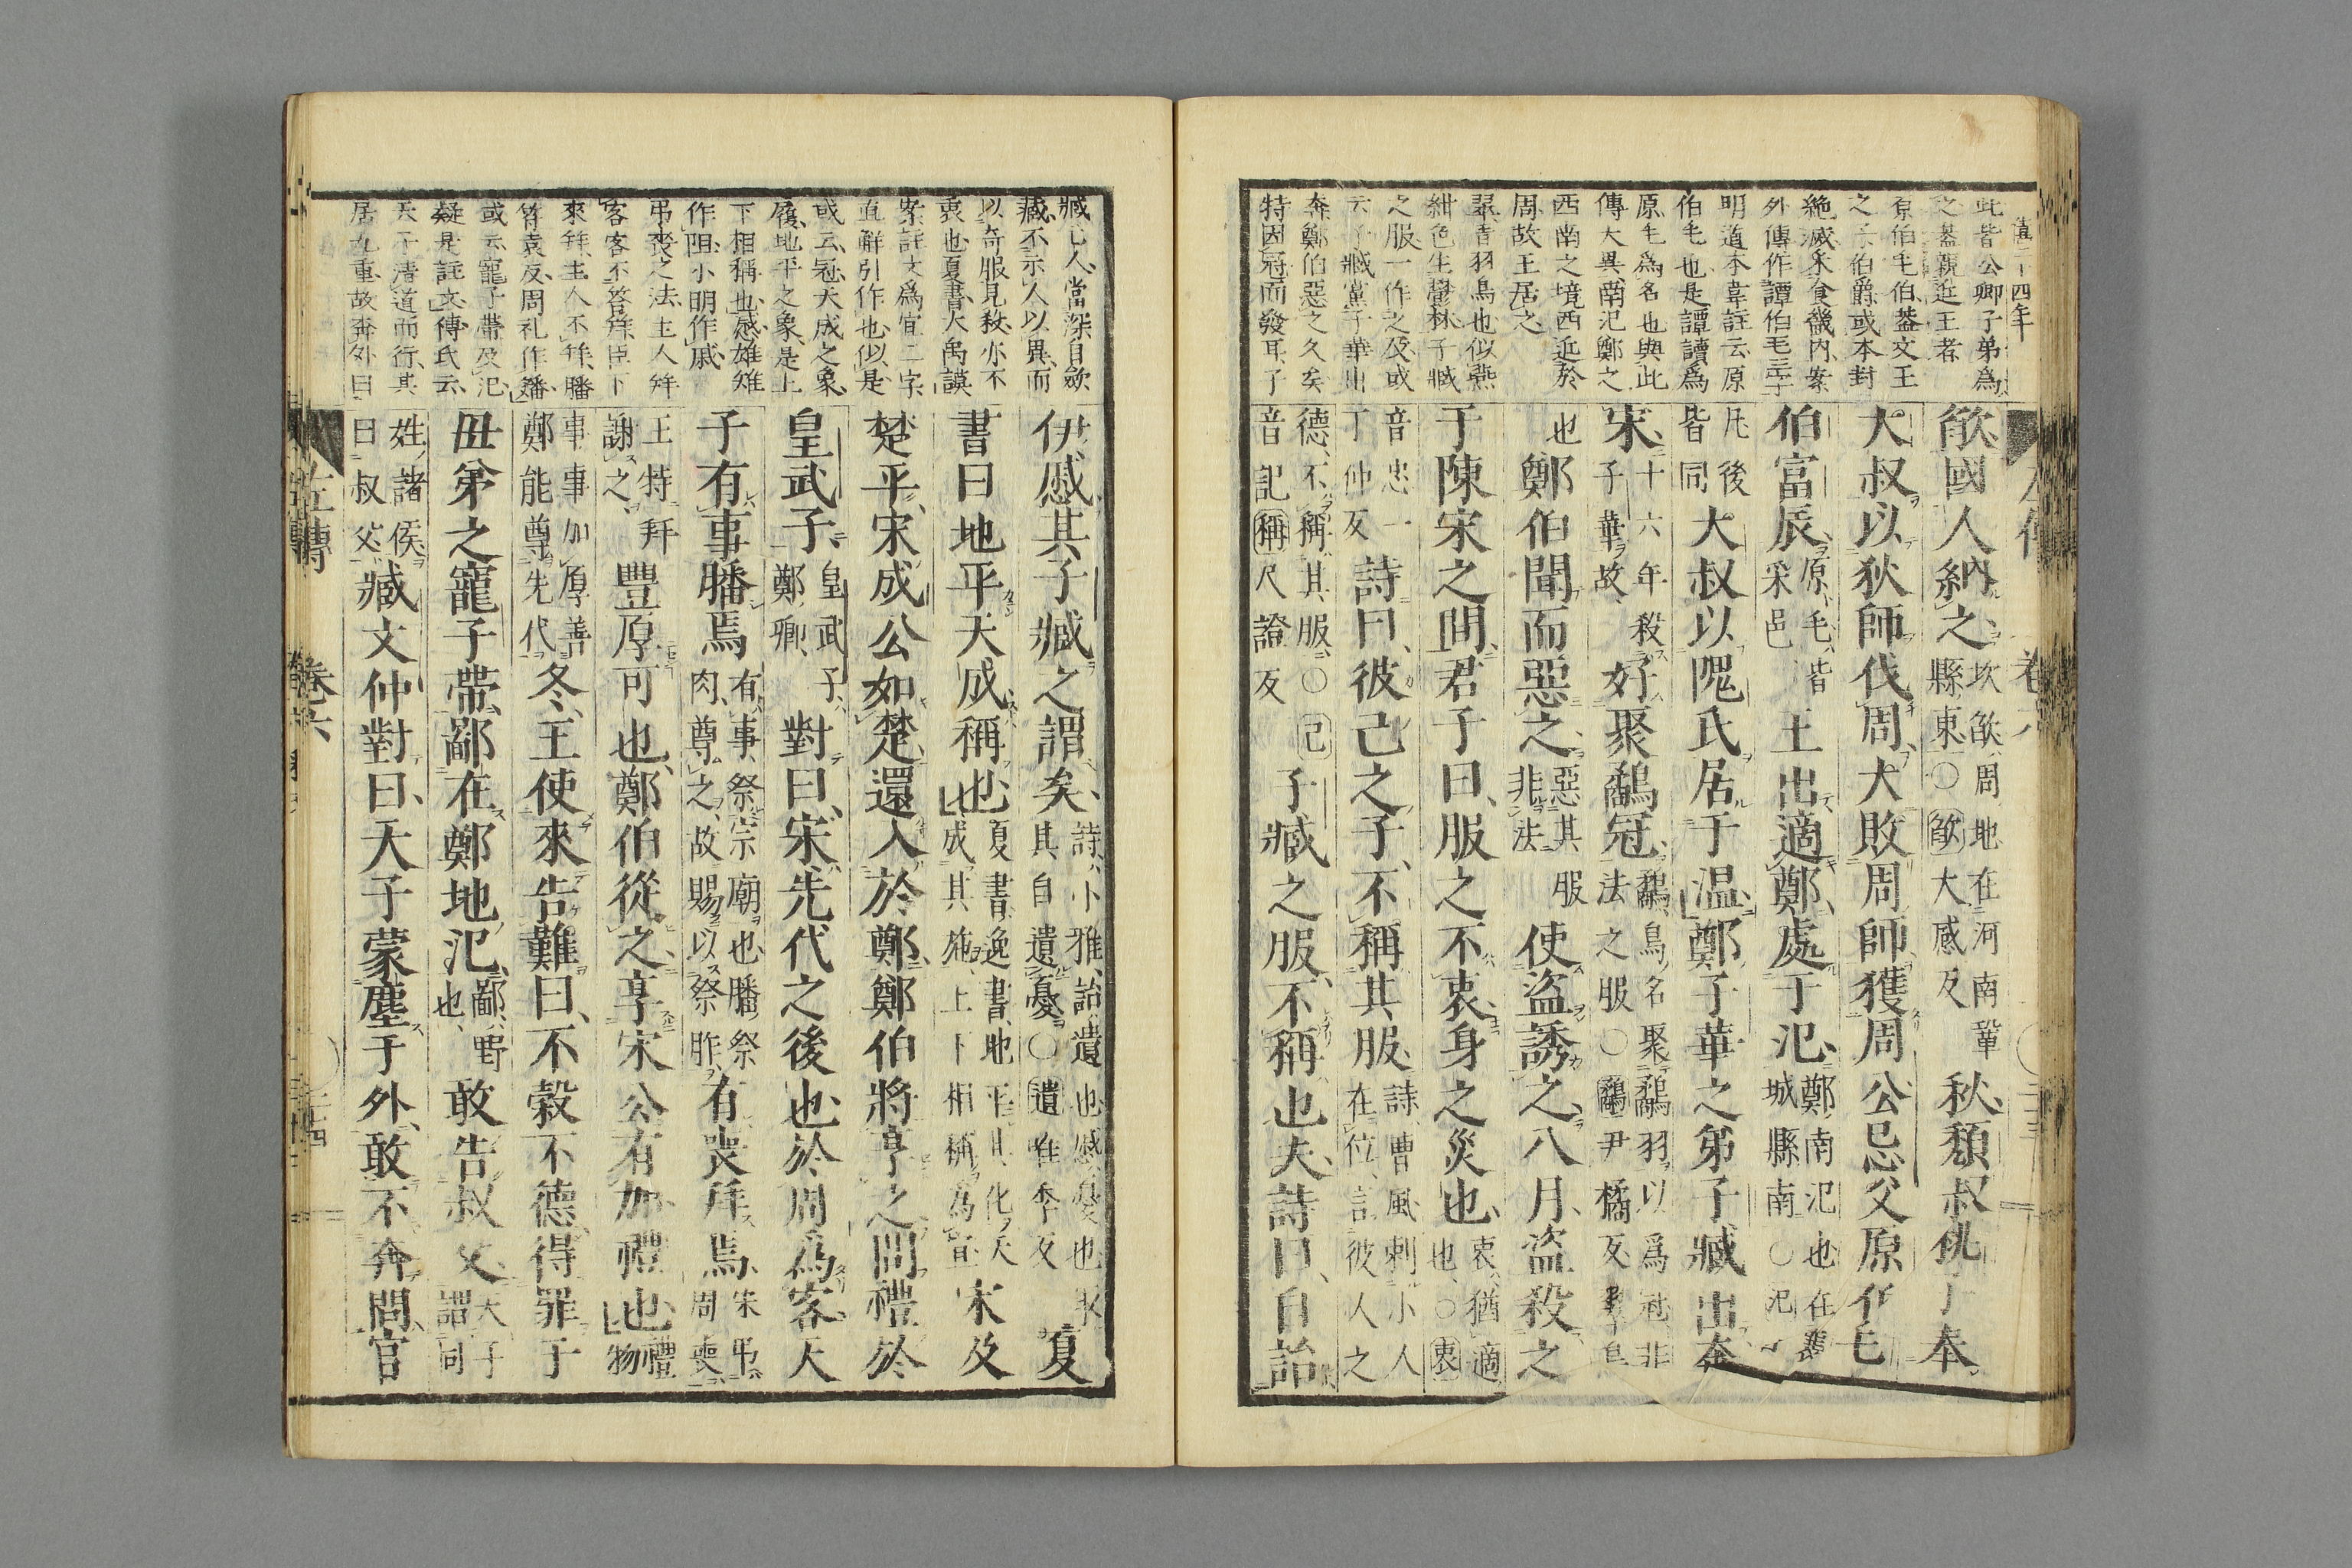 僖二十四年
此皆公卿子弟爲
之蓋親近王者
原伯毛伯蓋文王
之子伯爵或本封
絶滅釆食畿内案
外傳作譚伯毛三字
明道本韋註云原
伯毛也是譚讀爲
原毛爲名也與此
傳大異南氾鄭之
西南之境西近於
周故王居之
翠音羽鳥也似燕
紺色生鬱林子臧
之服一作之及或
云子臧黨子華出
奔鄭伯惡之久矣
特因冠而發耳子
欿國人納之坎欿周地在河南鞏縣東○欿大感反秋頽叔桃子奉
大叔以狄師伐周大敗周師獲周公忌父原伯毛
伯富辰原毛皆采邑王出適鄭處于氾鄭南氾也在襄城縣南○氾
凡後皆同大叔以隗氏居于温鄭子華之弟子臧出奔
宋十六年殺子華故好聚鷸冠鷸鳥名聚鷸羽以爲冠非法之服○鷸尹橘反
也鄭伯聞而惡之惡其服非法使盗誘之八月盗殺之
于陳宋之間君子曰服之不衷身之災也衷猶適也○衷
音忠一丁仲反詩曰彼己之子不稱其服詩曹風刺小人在位言彼人之
德不稱其服○己音記稱尺證反子臧之服不稱也夫詩曰自詒
臧亡人當深自斂
臧不示人以異而
以奇服見殺亦不
衷也夏書大禹謨
案註文爲宜二字
直解引作也似是
或云冠天成之象
履地平之象是上
下相稱也慼雄雉
作阻小明作戚
弔喪之法主人拜
客客不答拜臣下
來拜主人不拜膰
符袁反周礼作膰
或云寵子帶及氾
疑是註文傳氏云
天子清道而行其
居九重故奔外曰
伊慼其子臧之謂矣詩小雅詒遺也慼憂也取其自遺憂○遺唯季反夏
書曰地平天成稱也夏書逸書地平其化天成其施上下相稱爲宜宋及
楚平宋成公如楚還入於鄭鄭伯將享之問禮於
皇武子皇武子鄭卿對曰宋先代之後也於周爲客天
子有事膰焉有事祭宗廟也膰祭肉尊之故賜以祭胙有喪拜焉宋弔周喪
王特拜謝之豐厚可也鄭伯從之享宋公有加禮也禮物
事事加厚善鄭能尊先代冬王使來告難曰不穀不德得罪于
母弟之寵子帶鄙在鄭地氾鄙野也敢告叔父天子謂同
姓諸侯曰叔父臧文仲對曰天子蒙塵于外敢不奔問官
左傳
卷六